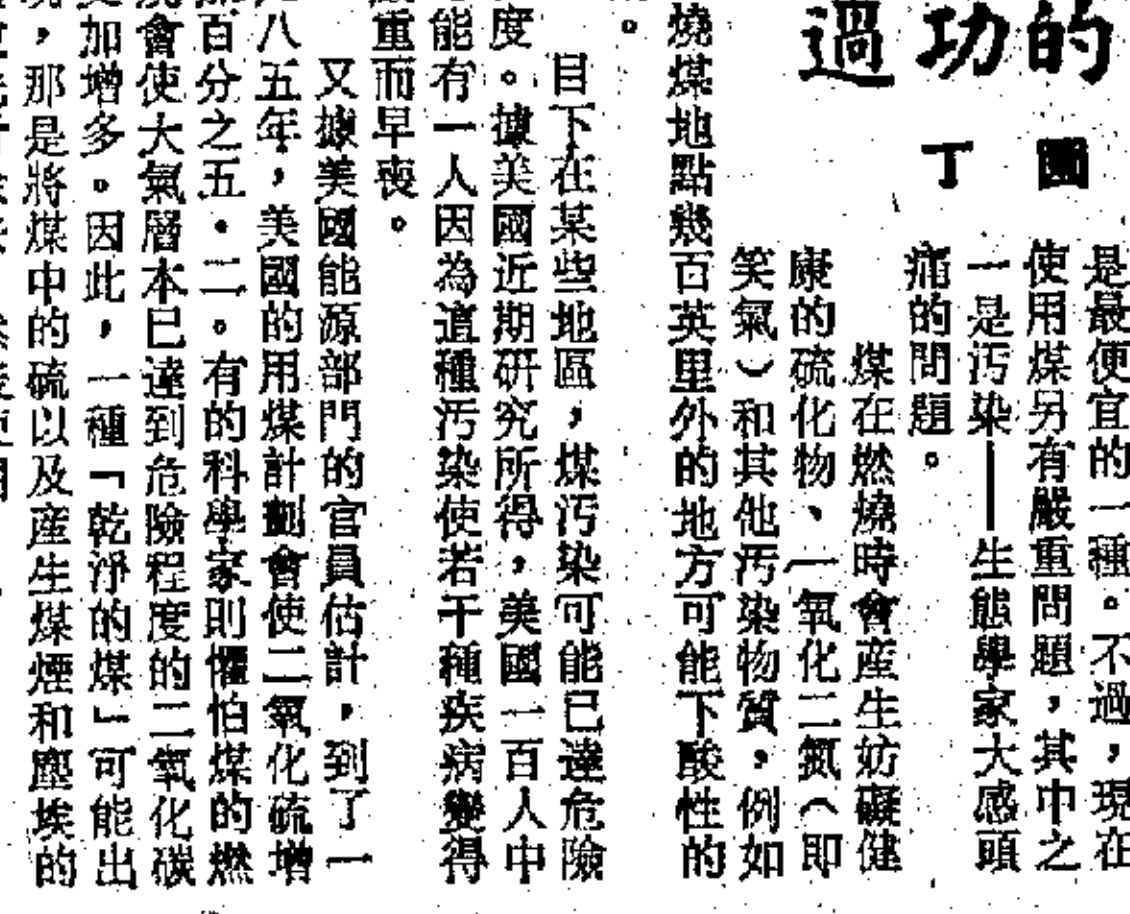 的功過
圖丁
是最便宜的一種。不過，現在
使用煤另有嚴重問題，其中之
一是汚染——生態學家大感頭
痛的問題。
煤在燃燒時會産生妨礙健
康的硫化物、一氧化二氮（即
笑氣）和其他汚染物質，例如
燒煤地點幾百英里外的地方可能下酸性的
。
目下在某些地區，煤汚染可能已達危險
度。據美國近期研究所得，美國一百人中
能有一人因為這種汚染使若干種疾病變得
重而早喪。
又據美國能源部門的官員估計，到了一
八五年，美國的用煤計劃會使二氧化硫增
百分之五．二。有的科學家則懼怕煤的燃
會使大氣層本已達到危險程度的二氧化碳
加增多。因此，一種「乾淨的煤」可能出
，那是將煤中的硫以及産生煤煙和塵埃的